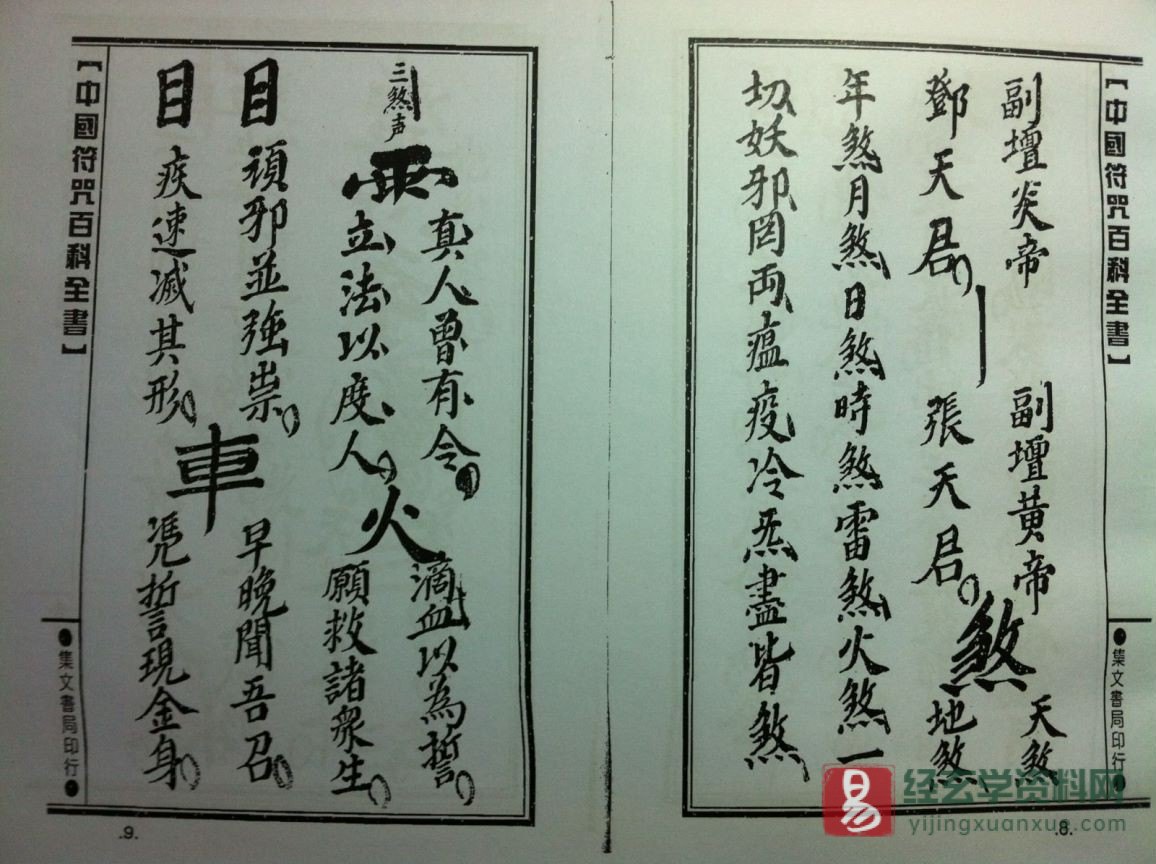 【中國符咒百科全書】
●集文書局印行●
副壇炎帝 副壇黃帝 天煞
鄧天君 張天君 煞 地煞
年煞月煞日煞時煞雷煞火煞一
切妖邪罔両瘟疫冷炁盡皆煞
.8.
三煞声
真人曾有令 滴血以為誓
立法以度人 火 願救諸衆生
目 頑邪並強祟 早晚聞吾召
車
目 疾速滅其形 憑誓現金身
【中國符咒百科全書】
●集文書局印行●
.9.
易
经玄学资料网
yijingxuanxue.com